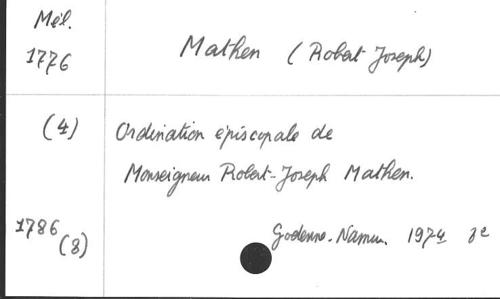 Mél.
1776
Mathen (Robert Joseph)
(4)
Ordination épiscopale de
Monseigneur Robert-Joseph Mathen.
1786
(8)
Godenne-Namur. 1974 8e